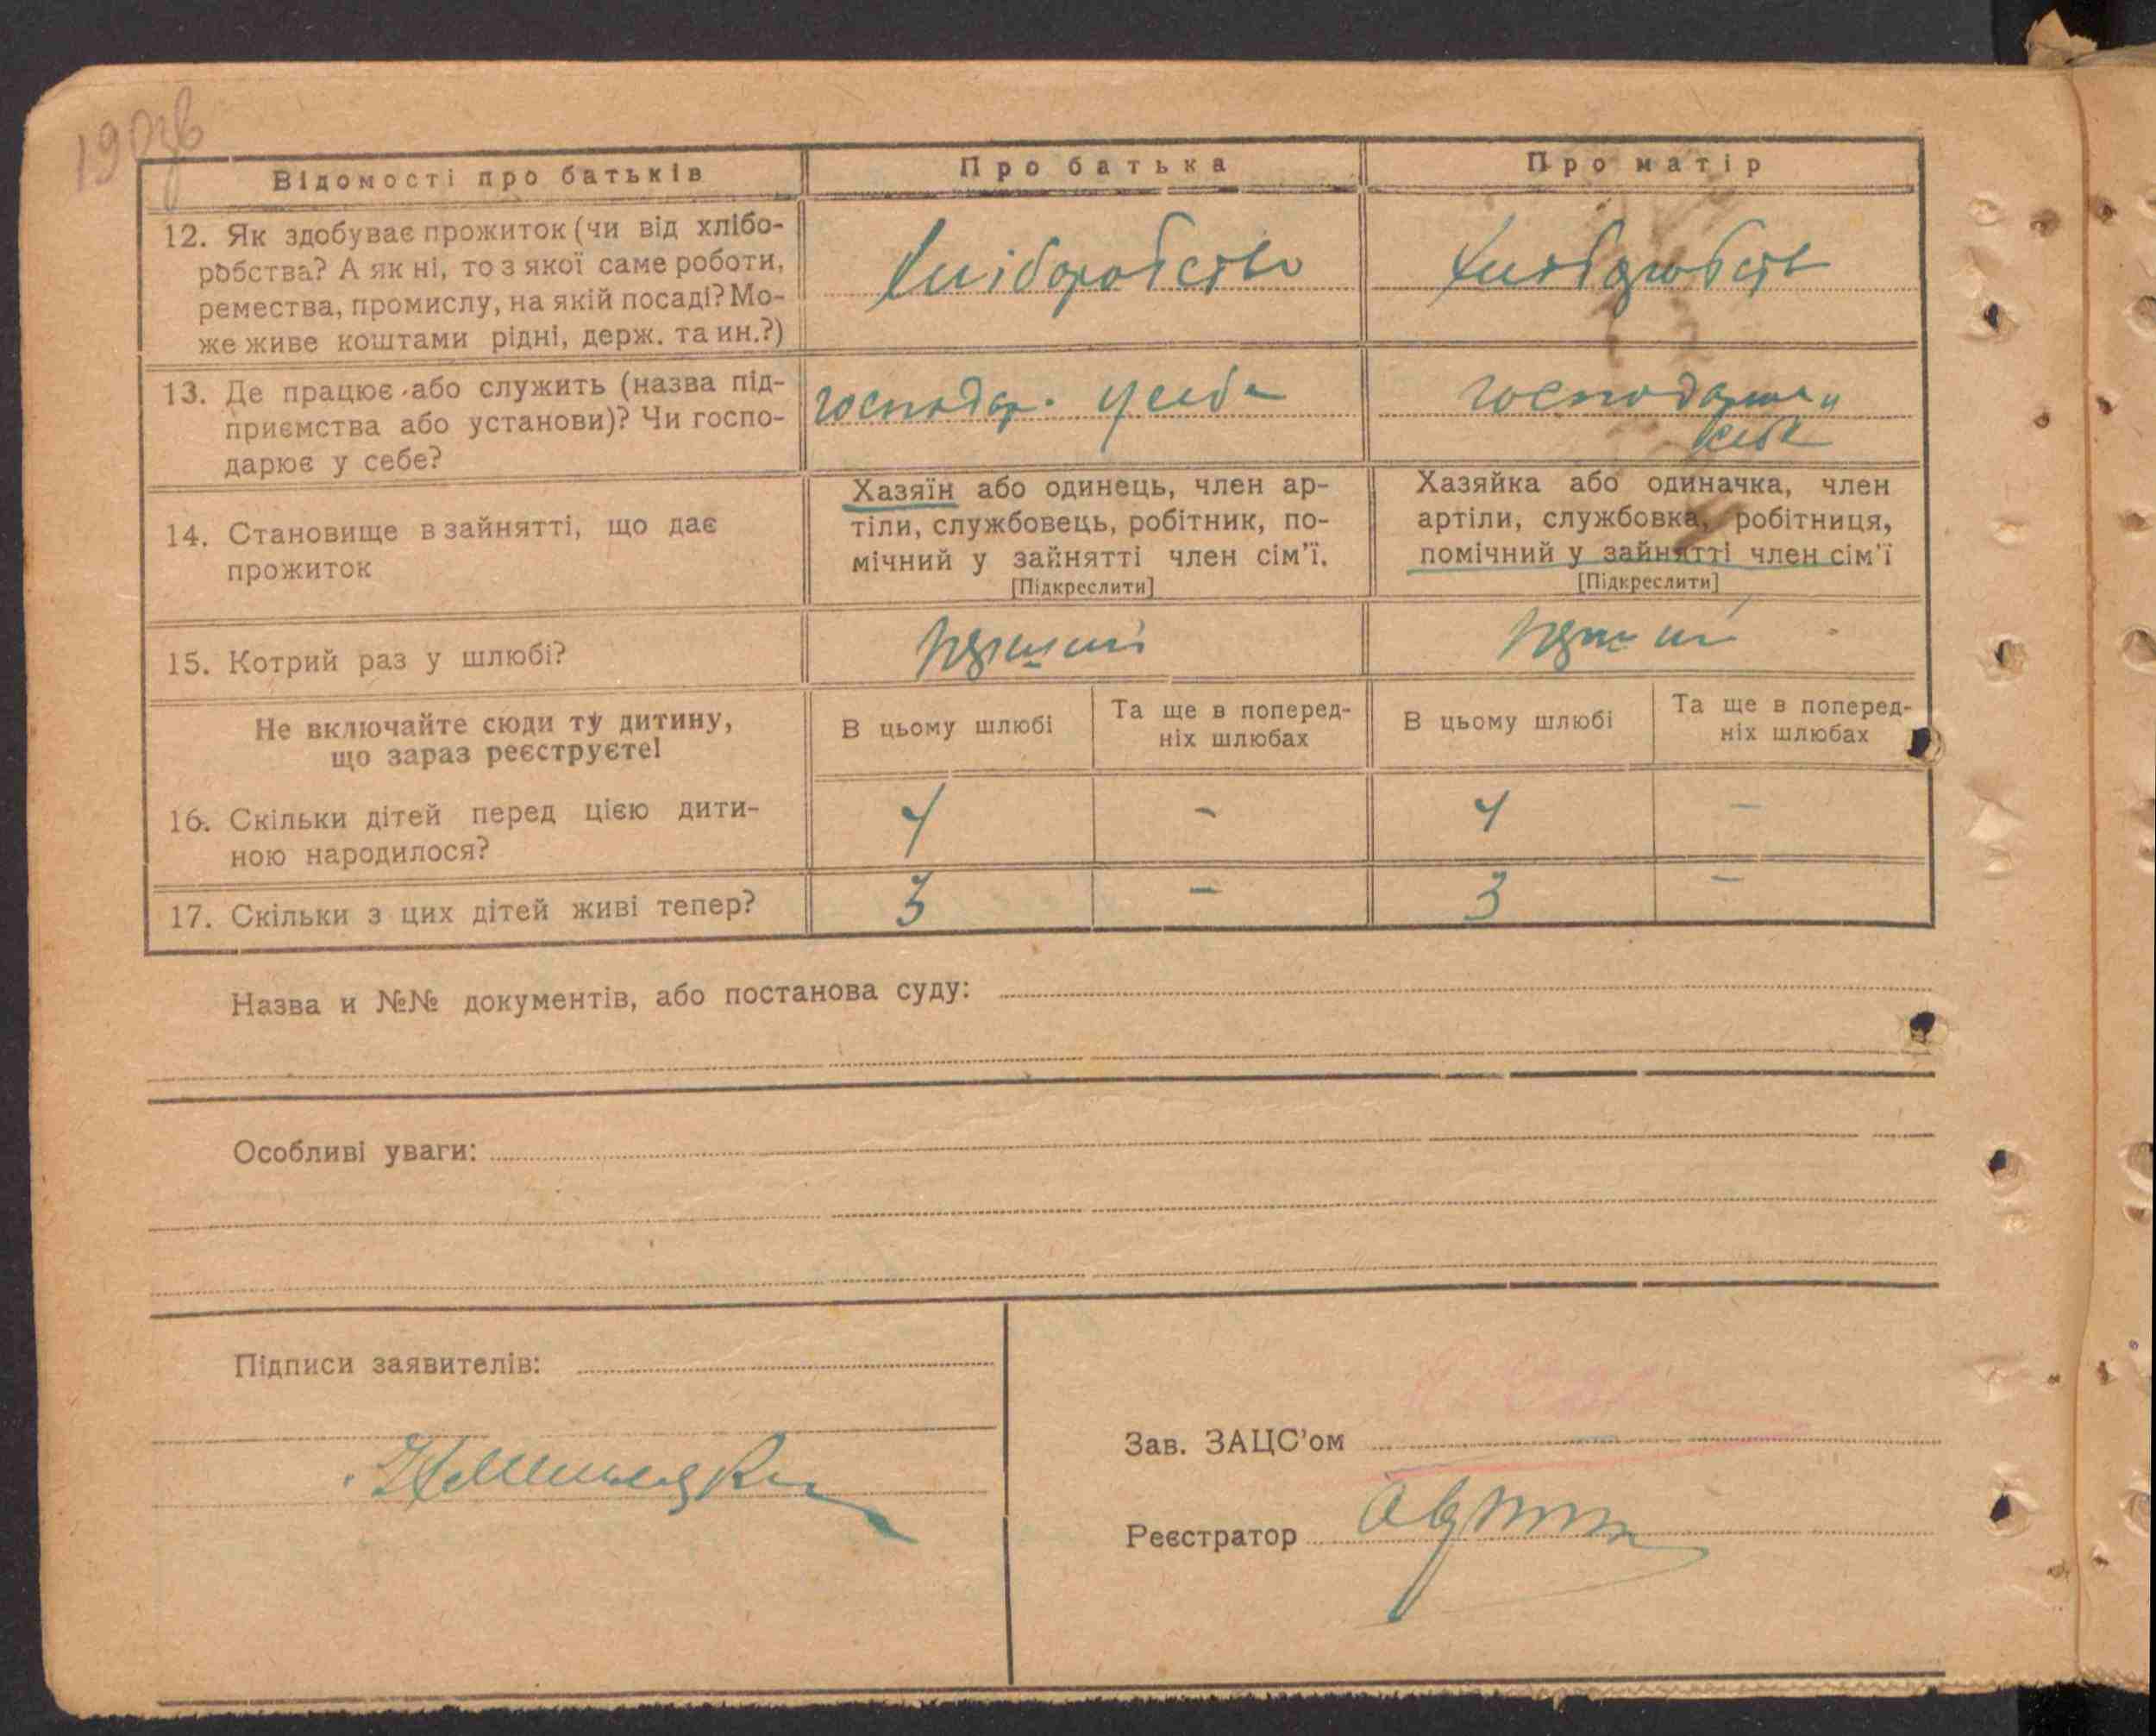 190зв
Відомості про батьків
Про батька
Про матір
12. Як здобуває прожиток (чи від хлібо-
робства? А як ні, то з якої саме роботи,
ремества, промислу, на якій посаді? Мо-
же живе коштами рідні, держ. та ин.?)
Хліборобство
Хліборобств
13. Де працює або служить (назва під-
приємства або установи)? Чи госпо-
дарює у себе?
господар. у себе
14. Становище в зайнятті, що дає
прожиток
Хазяїн або одинець, член ар-
тіли, службовець, робітник, по-
мічний у зайнятті член сім'ї.
[Підкреслити]
Хазяйка або одиначка, член
артіли, службовка, робітниця,
помічний у зайнятті член сім'ї
[Підкреслити]
15. Котрий раз у шлюбі?
перший
перший
Не включайте сюди ту дитину,
що зараз реєструєте!
В цьому шлюбі
Та ще в поперед-
ніх шлюбах
В цьому шлюбі
Та ще в поперед-
ніх шлюбах
16. Скільки дітей перед цією дити-
ною народилося?
4 - 4 -
17. Скільки з цих дітей живі тепер?
3 - 3 -
Назва и №№ документів, або постанова суду:
Особливі уваги:
Підписи заявителів:
Зав. ЗАЦС'ом
Реєстратор